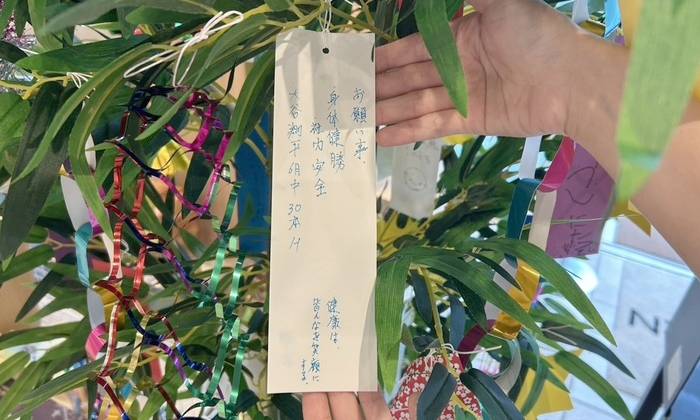 お願い事、
身体健勝
社内安全
大谷翔平6月中30本H
健康は、
皆んなを笑顔に
する。